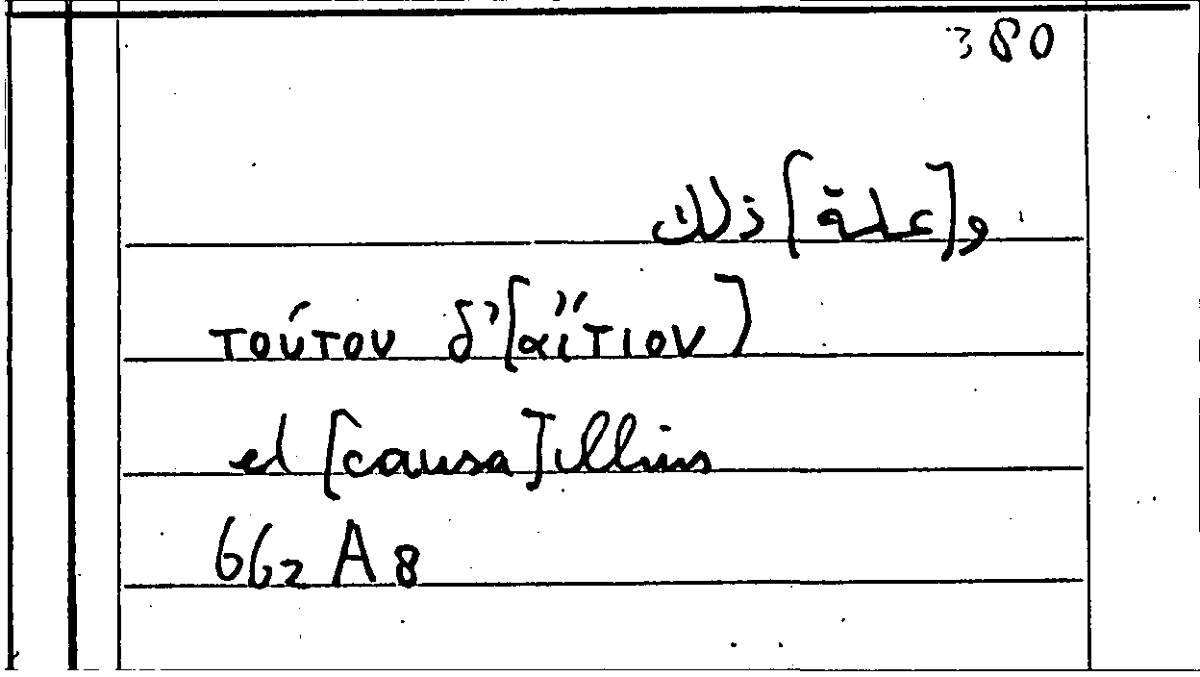 380
و[علة] ذلك
τούτου δ'[αἴτιον]
et [causa] illius
662 A 8